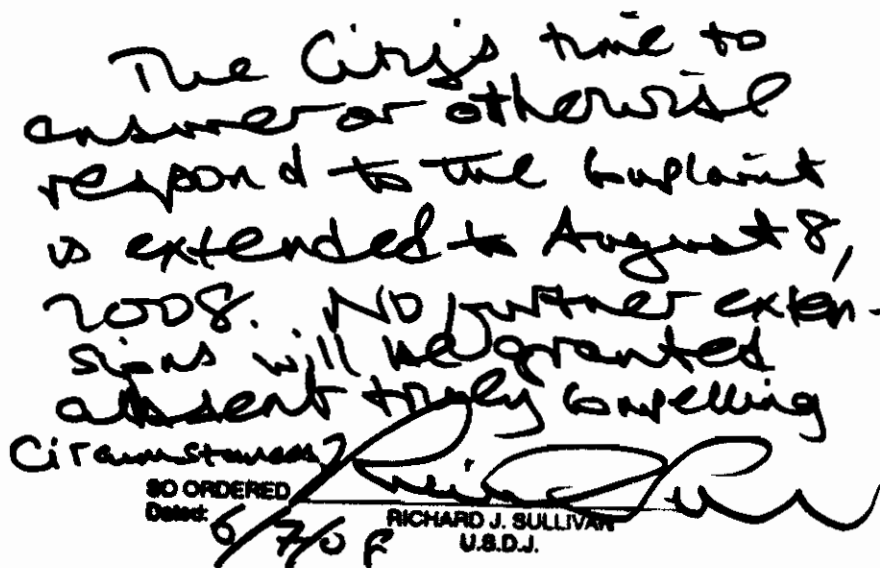 The City's time to
answer or otherwise
respond to the complaint
is extended to August 8,
2008. No further exten-
sions will be granted
absent truly compelling
circumstances.
SO ORDERED
Dated: 6/7/08
RICHARD J. SULLIVAN
U.S.D.J.